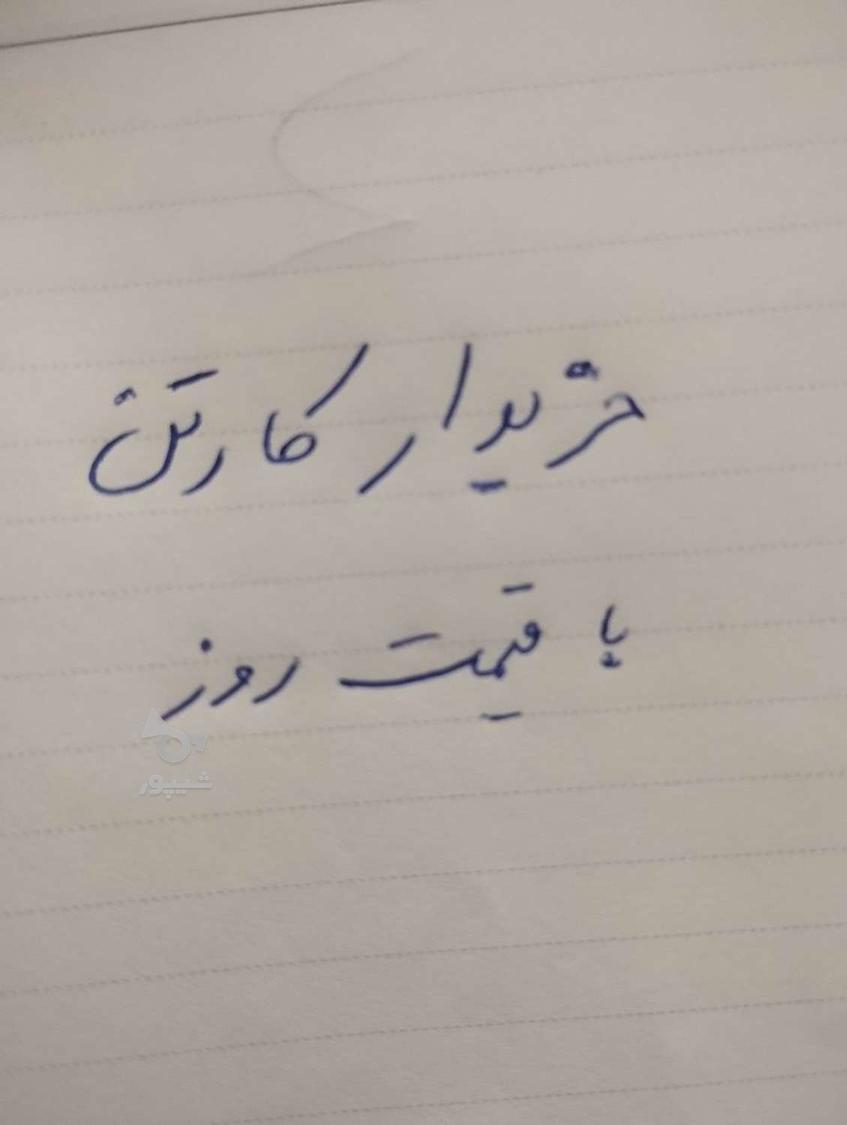 خریدار کارتن
با قیمت روز
شیپور